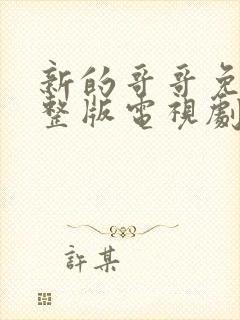 新的哥哥免
整版電視劇
許某